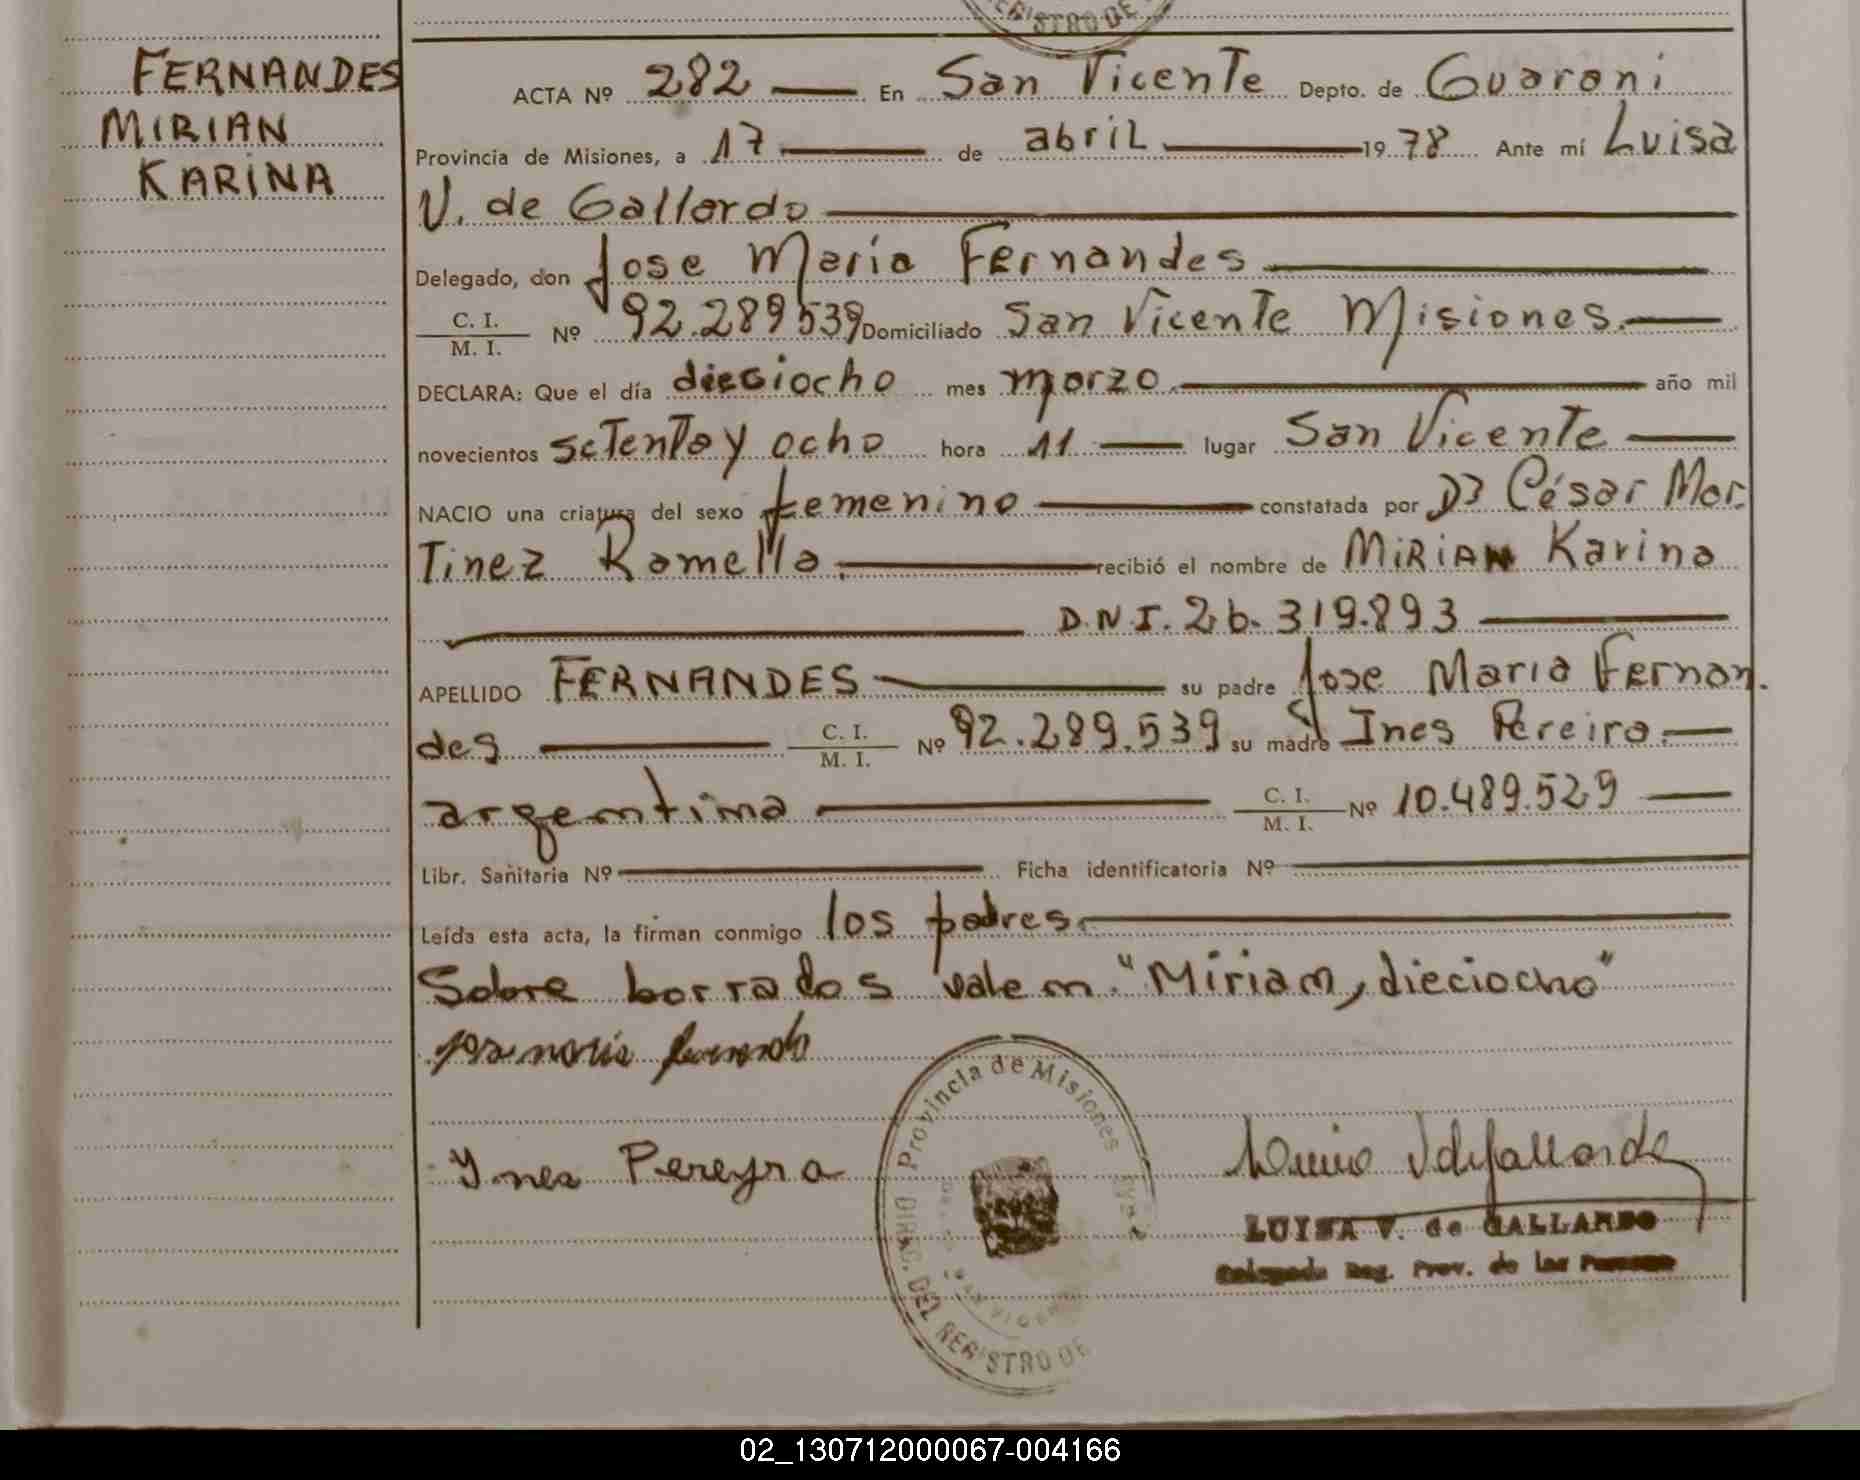 REGISTRO DE
FERNANDES
MIRIAN
KARINA
ACTA Nº 282 En San Vicente Depto. de Guarani
Provincia de Misiones, a 17 de abril 1978 Ante mí Luisa
V. de Gallardo
Delegado, don Jose Maria Fernandes
C. I.
M. I. Nº 92.289539 Domiciliado San Vicente Misiones.
DECLARA: Que el día dieciocho mes marzo año mil
novecientos setenta y ocho hora 11 lugar San Vicente
NACIO una criatura del sexo femenino constatada por Dr César Mar
Tinez Ramella. recibió el nombre de MIRIAN Karina
D.N.I. 26.319.893
APELLIDO FERNANDES su padre Jose Maria Fernan
des C. I.
M. I. Nº 92.289.539 su madre Ines Pereira.
argentina C. I.
M. I. Nº 10.489.529
Libr. Sanitaria Nº Ficha identificatoria Nº
Leída esta acta, la firman conmigo los padres.
Sobre borrados valen. "Miriam, dieciocho"
Ynes Pereyra
Provincia de Misiones
DIREC. DEL REGISTRO DE
SAN VICENTE
LUISA V. de GALLARDO
Delegada Reg. Prov. de las Personas
02_130712000067-004166